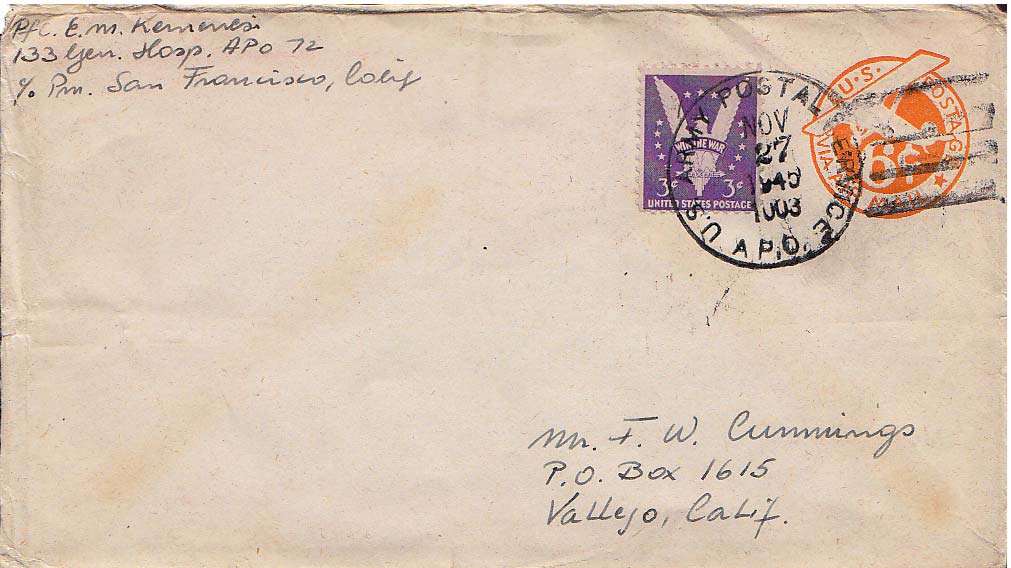 Pfc. E. M. Kemenesi
133 Gen. Hosp. APO 72
c/o Pm. San Francisco, Calif
WIN THE WAR
3¢ 3¢
UNITED STATES POSTAGE
U.S. ARMY POSTAL SERVICE
NOV
27
1945
1003
A.P.O.
U.S. POSTAGE
VIA AIR MAIL
6¢
Mr. F. W. Cummings
P.O. Box 1615
Vallejo, Calif.